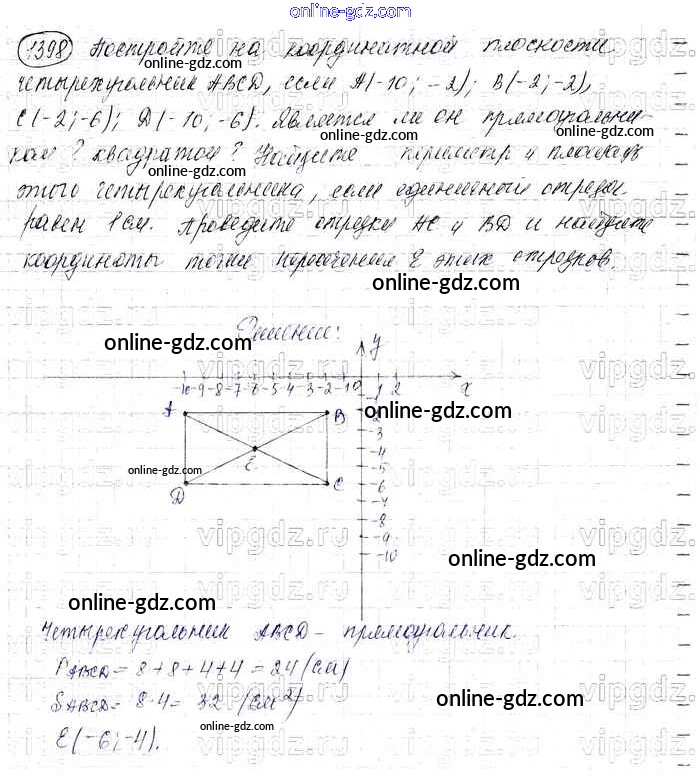 online-gdz.com
1398 Постройте на координатной плоскости
online-gdz.com
четырехугольник ABCD, если A(-10; -2); B(-2; -2),
C(-2; -6); D(-10; -6). Является ли он прямоугольни-
online-gdz.com
ком? квадратом? Найдите периметр и площадь
этого четырехугольника, если единичный отрезок
равен 1 см. Проведите отрезки AC и BD и найдите
координаты точки пересечения E этих отрезков.
online-gdz.com
Решение:
online-gdz.com
vipgdz.ru
y
-10 -9 -8 -7 -6 -5 -4 -3 -2 -1 0 1 2 x
A B
-1
online-gdz.com
-2
-3
-4
E
online-gdz.com
-5
D C -6
-7
-8
-9
-10
vipgdz.ru
online-gdz.com
online-gdz.com
Четырехугольник ABCD - прямоугольник.
PABCD = 8+8+4+4 = 24 (см)
SABCD = 8·4 = 32 (см²)
online-gdz.com
online-gdz.com
E(-6; -4).
vipgdz.ru